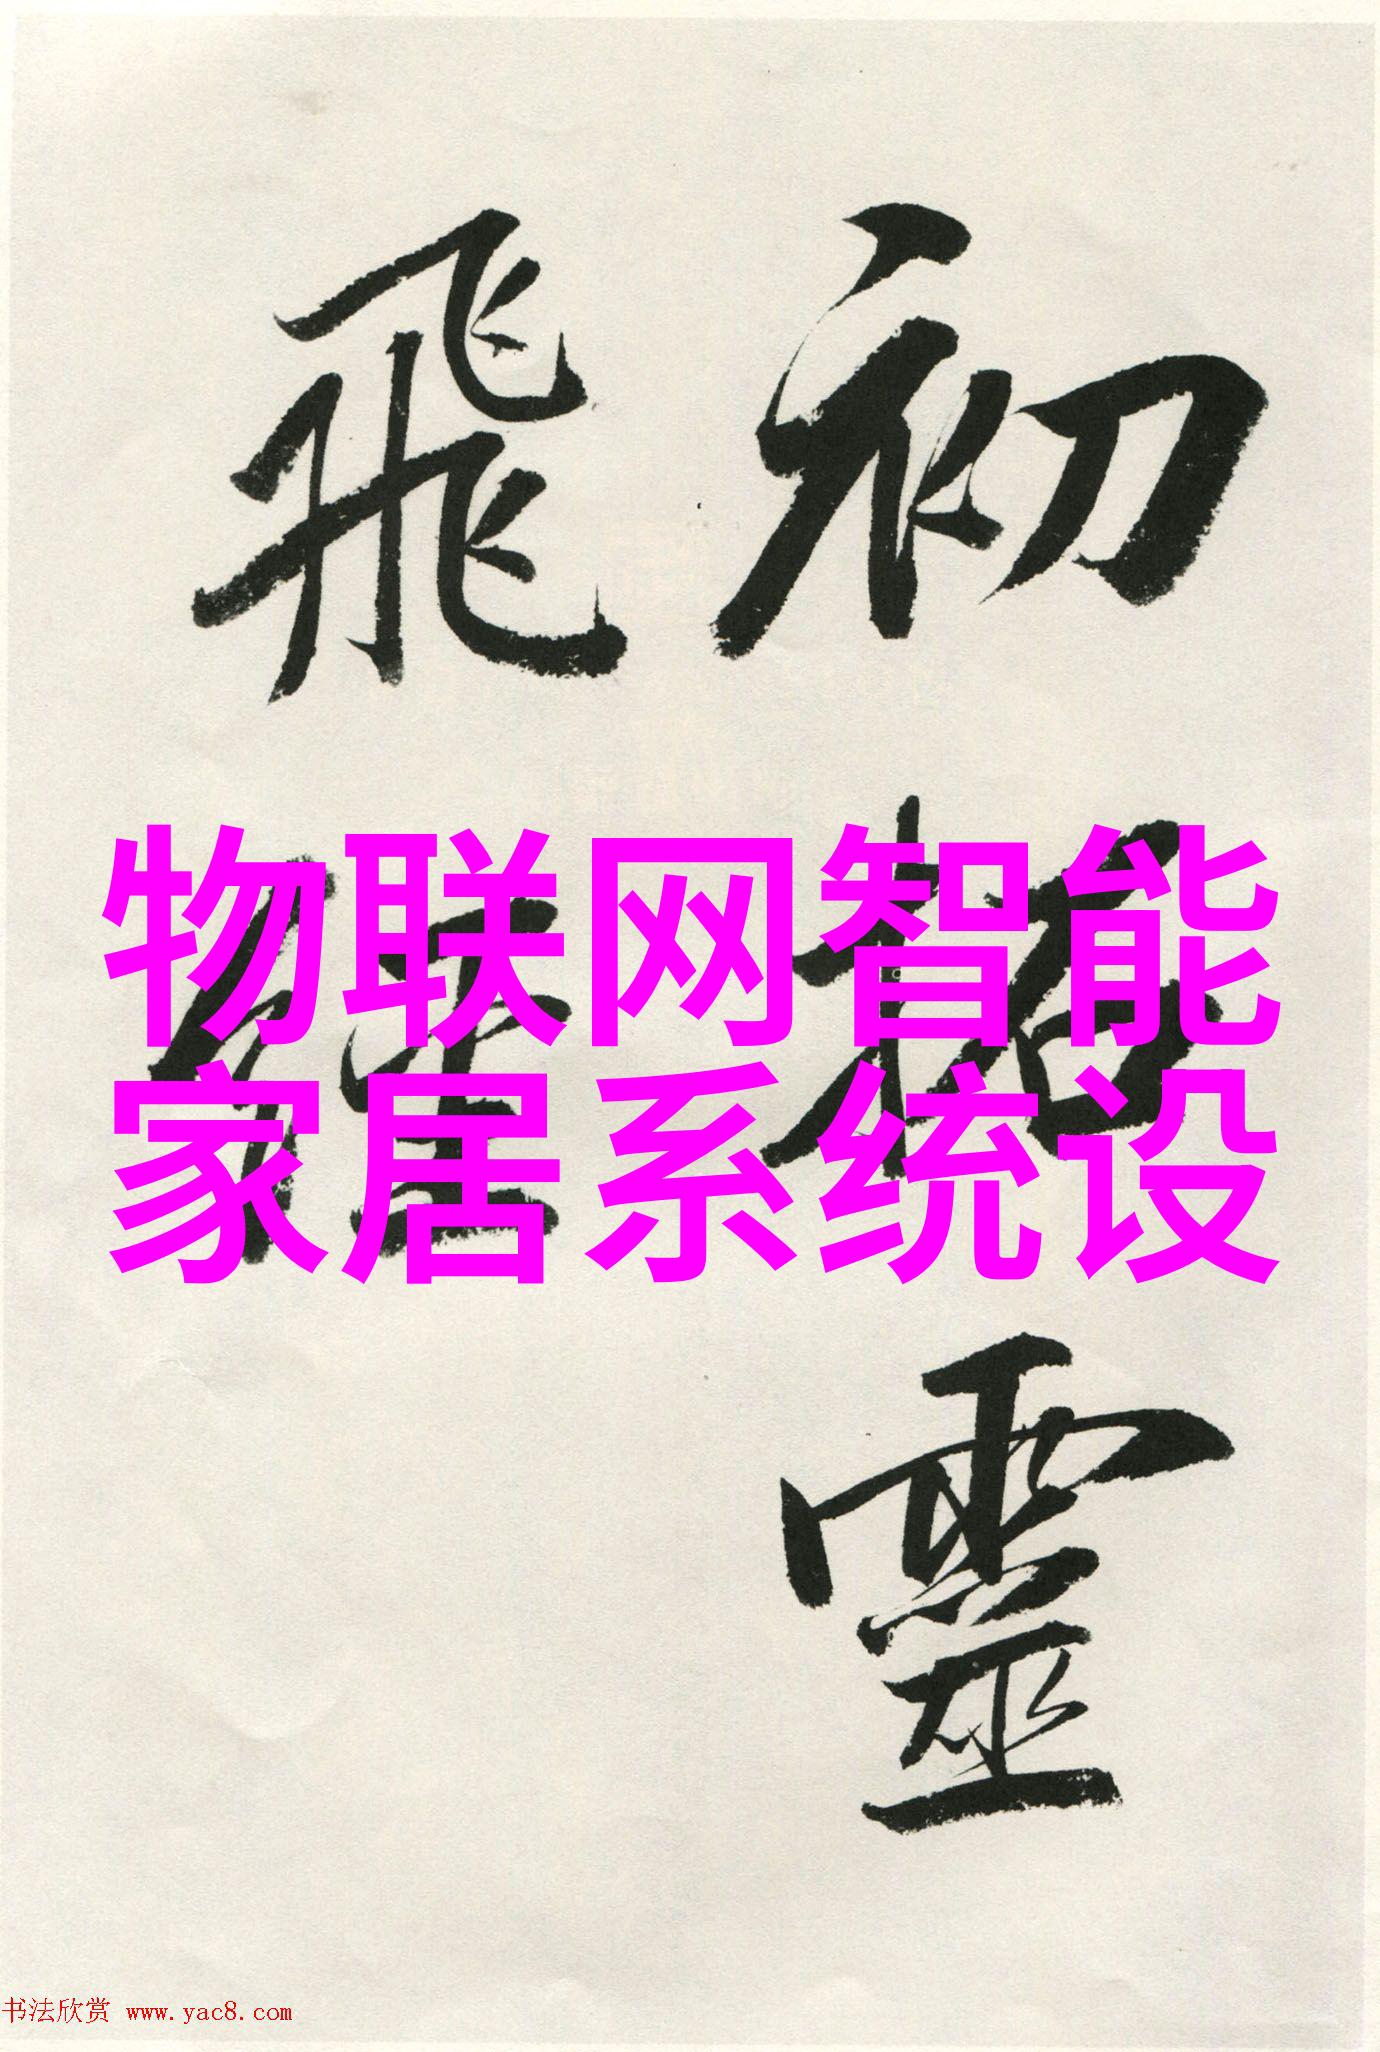 初拓靈
飛經
物联网智能
家居系统设
书法欣赏 www.yac8.com